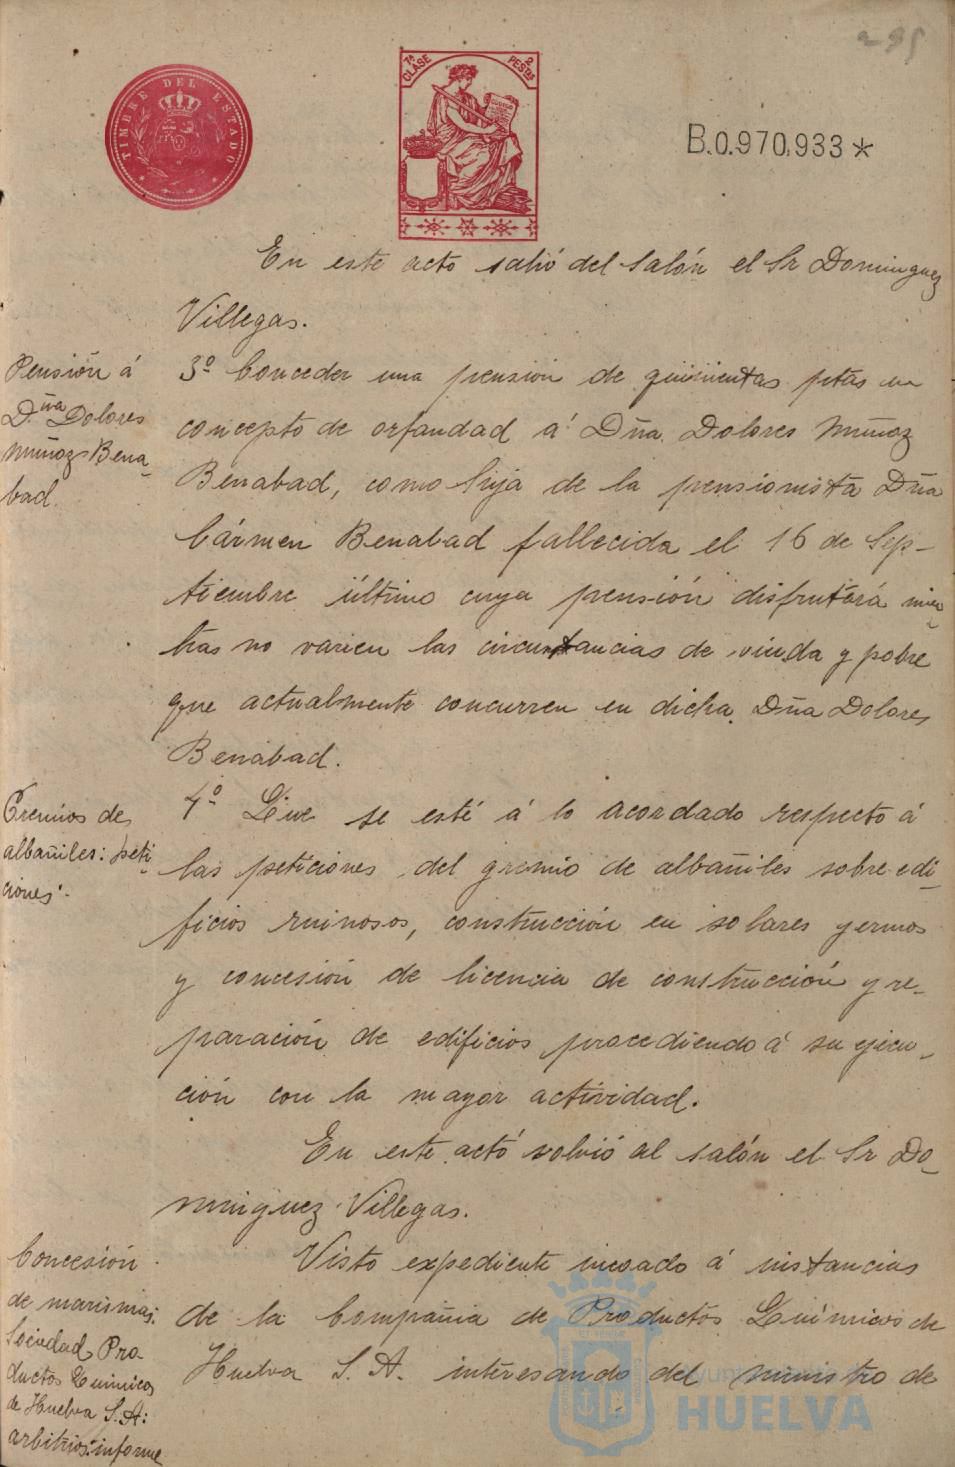 295
TIMBRE DEL ESTADO
7ª CLASE
2 PESTAS
B.0.970.933 *
En este acto salió del Salón el Sr Dominguez
Villegas.
Pensión á
Dña Dolores
Muñoz Bena-
bad.
3º Conceder una pension de quinientas ptas en
concepto de orfandad á Dña. Dolores Muñoz
Benabad, como hija de la pensionista Dña
Cármen Benabad fallecida el 16 de Sep-
tiembre último cuya pensión disfrutará mien-
tras no varien las circunstancias de viuda y pobre
que actualmente concurren en dicha Dña Dolores
Benabad.
Gremios de
albañiles: peti-
ciones.
4º Que se esté á lo acordado respecto á
las peticiones del gremio de albañiles sobre edi-
ficios ruinosos, construcción en solares yermos
y concesión de licencia de construcción y re-
paración de edificios procediendo á su ejecu-
ción con la mayor actividad.
En este actó volvió al salón el Sr Do-
minguez Villegas.
Concesión
de marismas:
Sociedad Pro-
ductos Quimicos
de Huelva S.A:
arbitrios: informe
Visto expediente incoado á instancias
de la Compañia de Productos Químicos de
Huelva S. A. interesando del ministro de
Ayuntamiento de
HUELVA